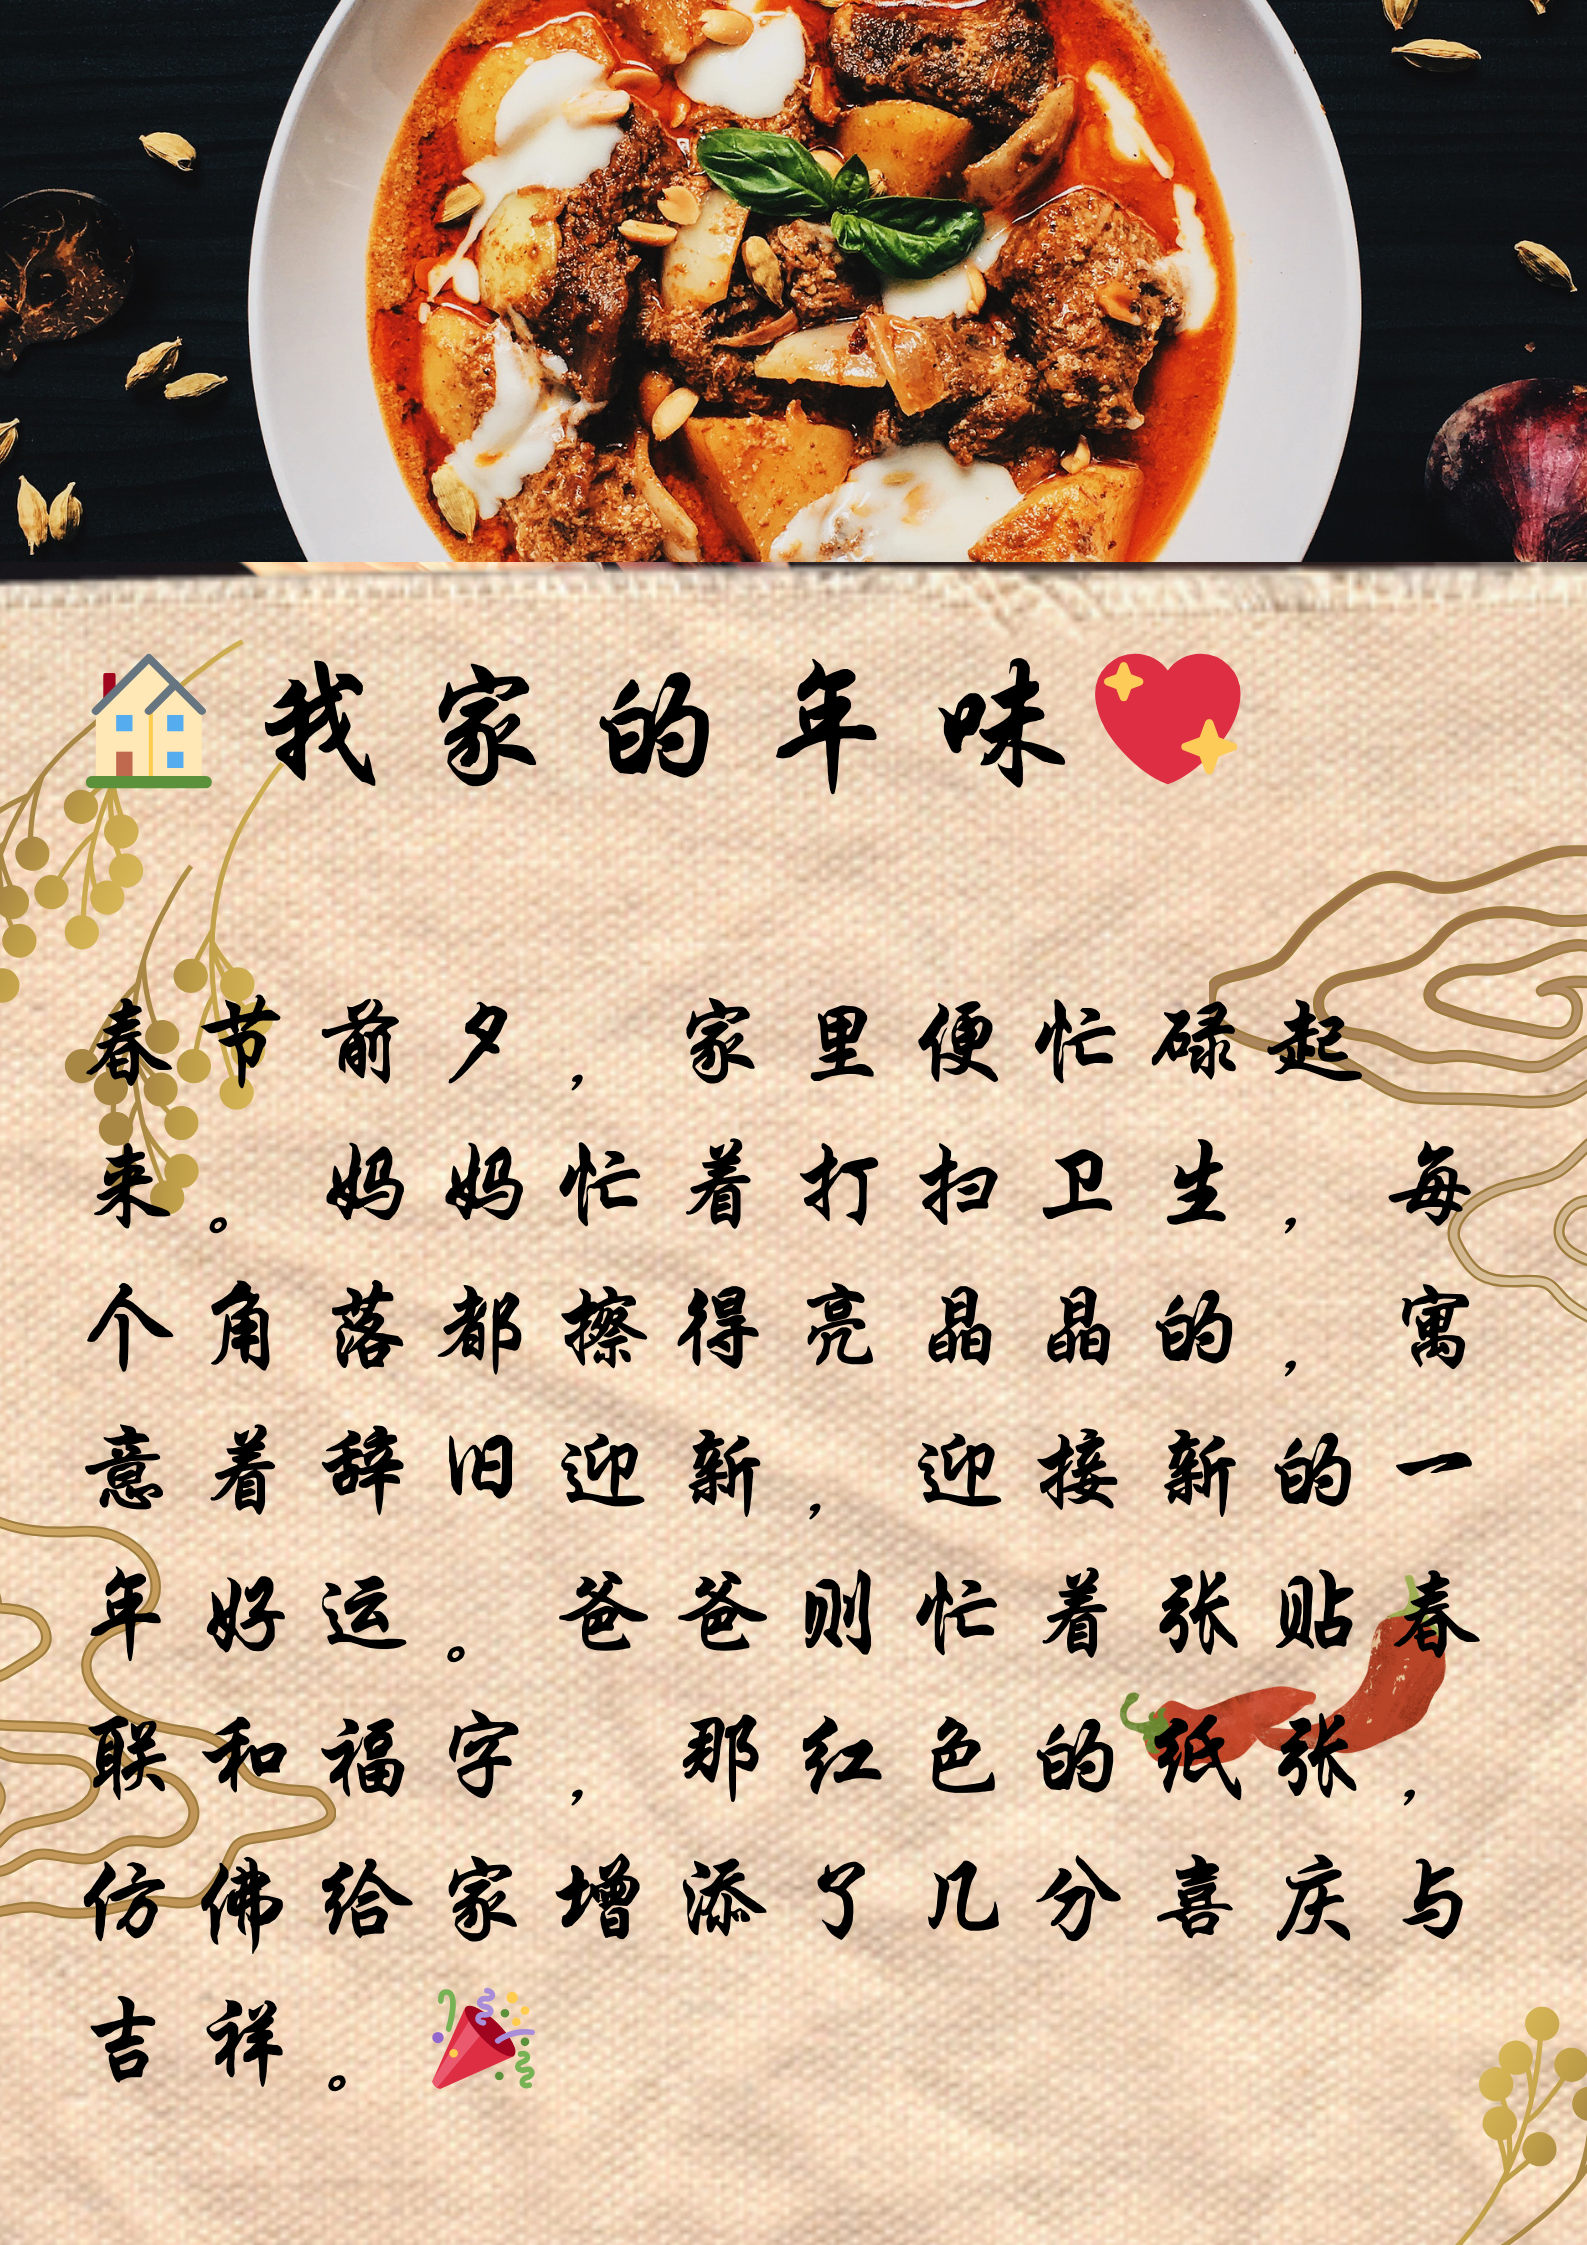 🏠我家的年味💖
春节前夕，家里便忙碌起
来。妈妈忙着打扫卫生，每
个角落都擦得亮晶晶的，寓
意着辞旧迎新，迎接新的一
年好运。爸爸则忙着张贴春
联和福字，那红色的纸张，
仿佛给家增添了几分喜庆与
吉祥。🎉